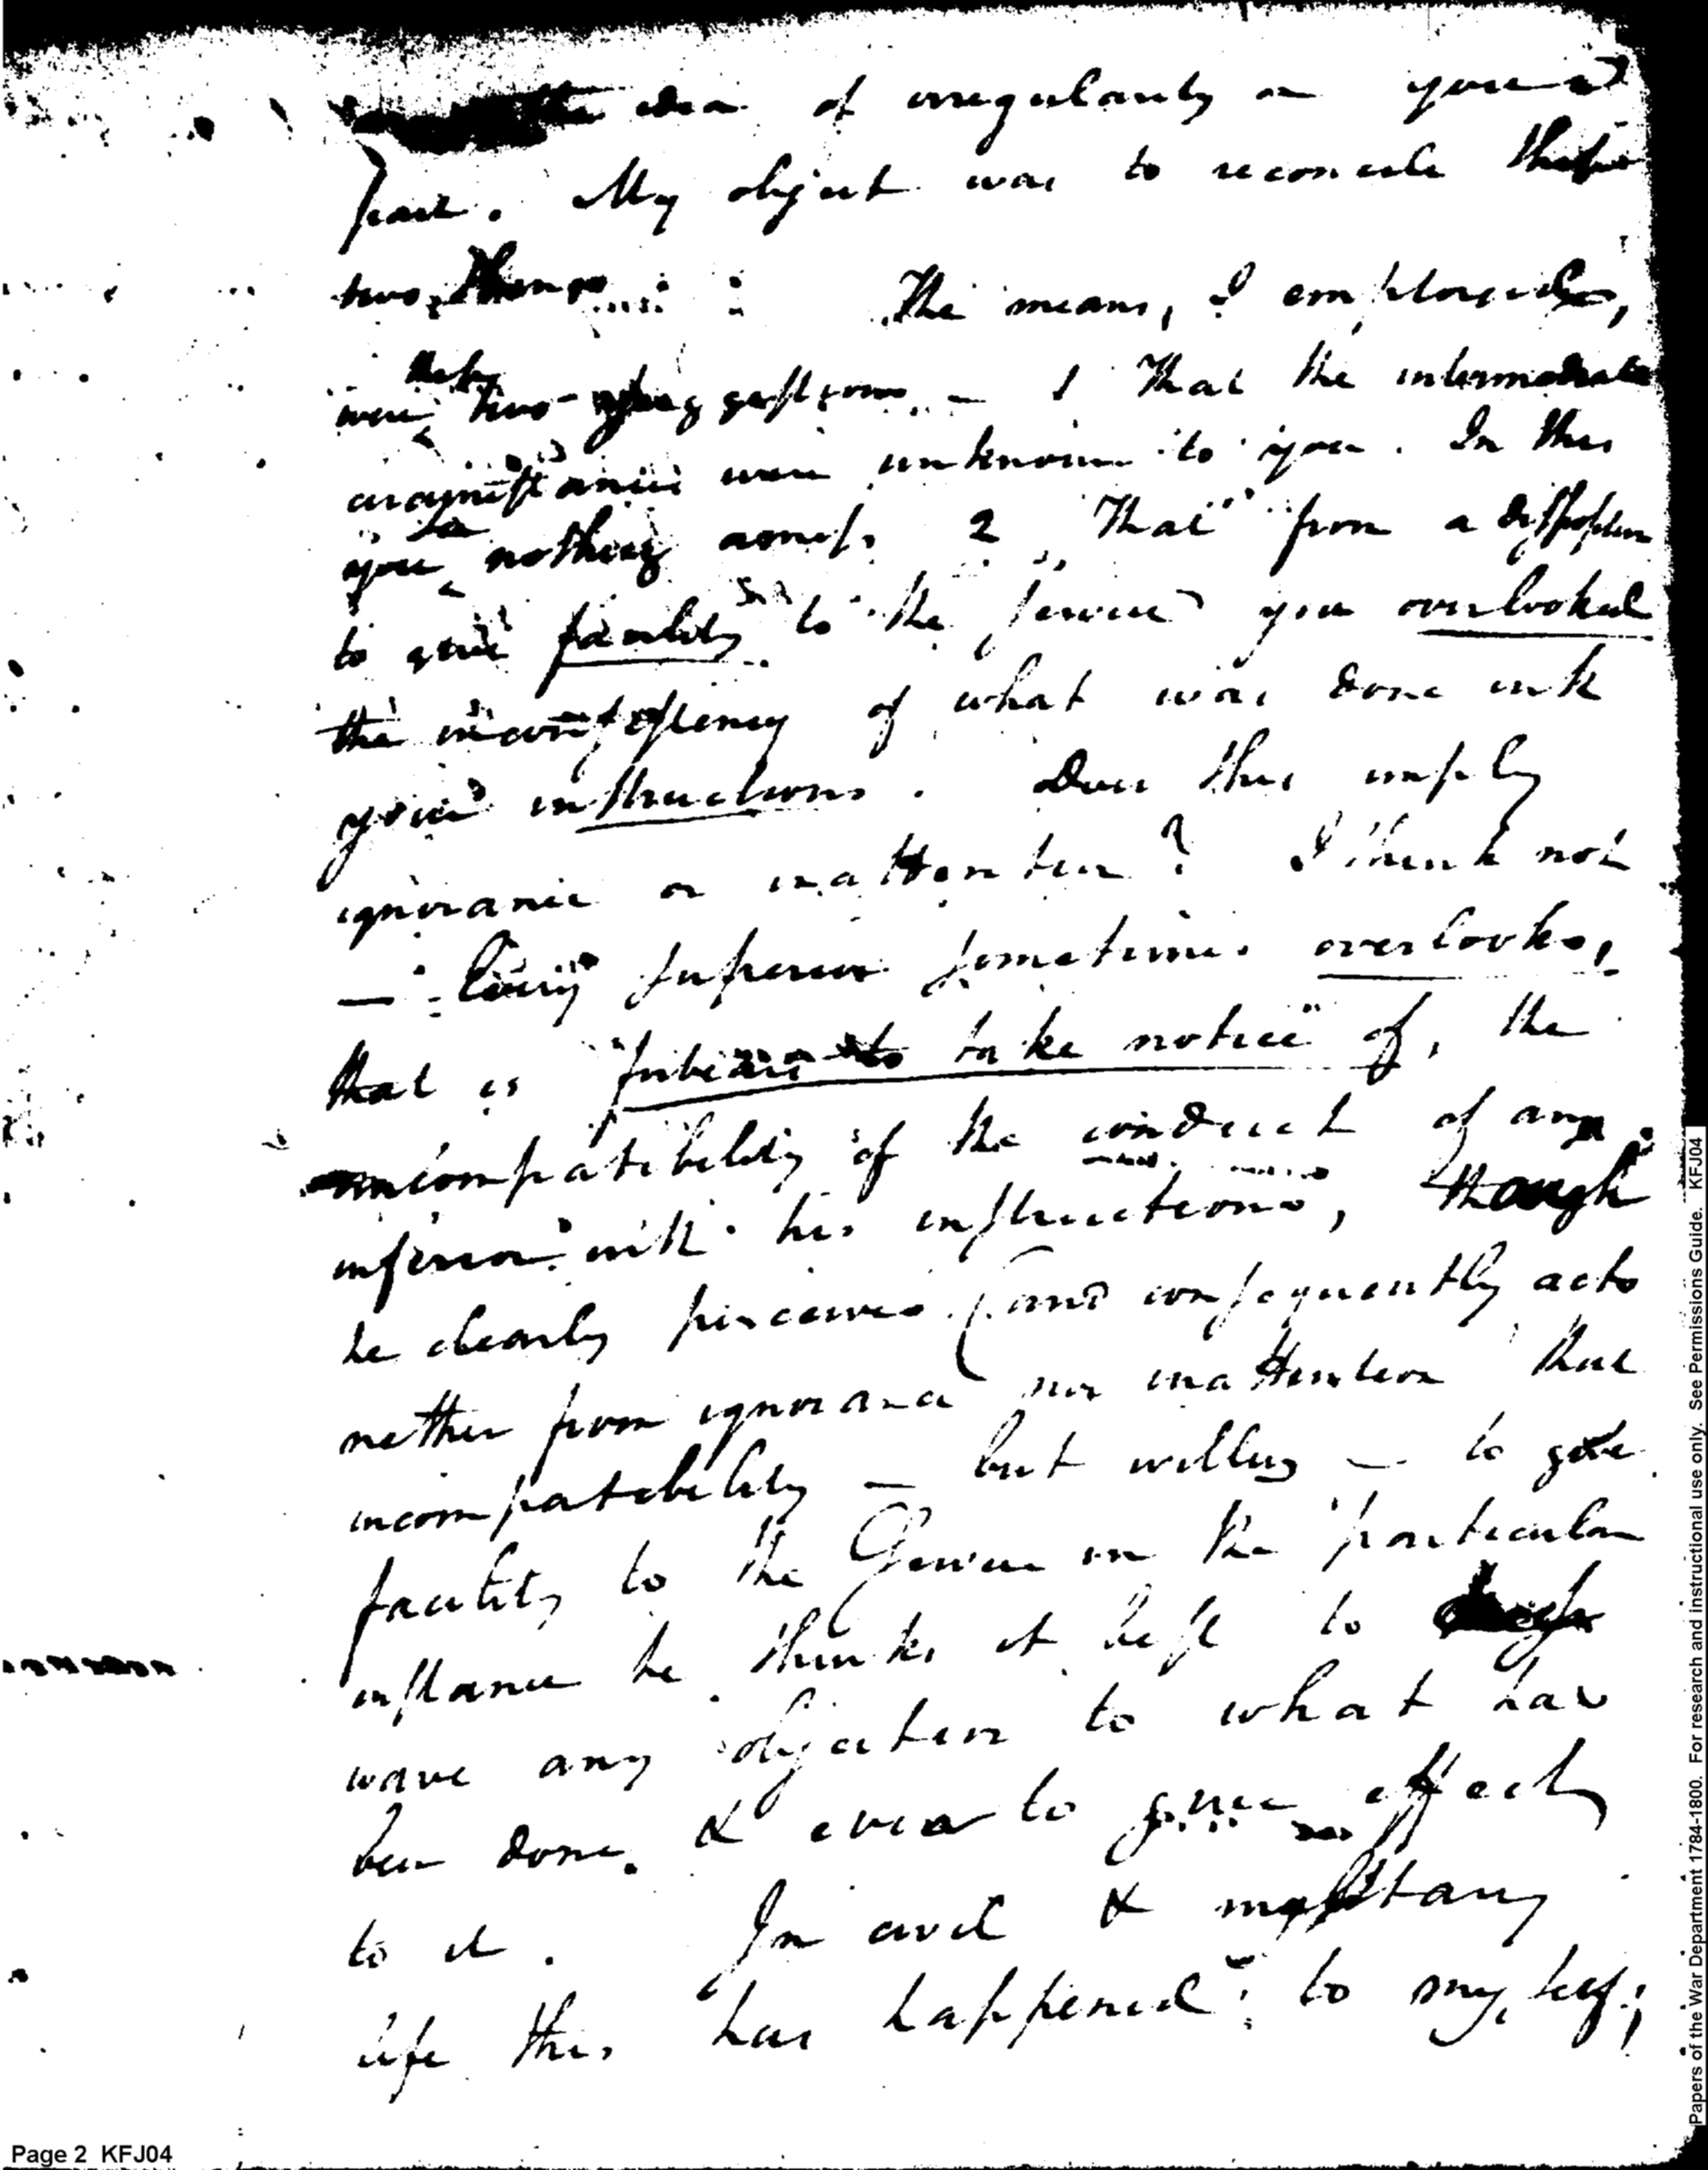 the idea of irregularity on your
part. My object was to reconcile these
two things The means, I employed,
were these two suggestions — 1 That the intermediate
circumstances were unknown to you. In this
you see nothing amiss 2 That from a disposition
to give facility to the service you overlooked
the inconsistency of what was done with
your instructions. Does this imply
ignorance or inattention? I think not
— Every superior sometimes overlooks,
that is "forbears to take notice" of, the
incompatibility of the conduct of any
inferior with his instructions, though
he clearly perceives (and consequently acts
neither from ignorance nor inattention that
incompatibility — but willing — to give
facility to the Service in the particular
instance he thinks it best to
wave any objection to what has
been done, & even to give effect
to it. In civil & military
life this has happened to myself;
Page 2 KFJ04
Papers of the War Department 1784-1800. For research and instructional use only. See Permissions Guide. KFJ04